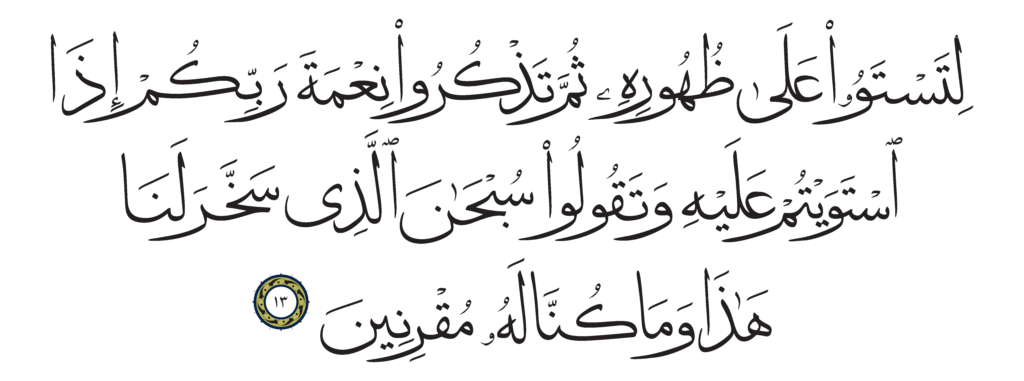 لِتَسْتَوُۥا۟ عَلَىٰ ظُهُورِهِۦ ثُمَّ تَذْكُرُوا۟ نِعْمَةَ رَبِّكُمْ إِذَا
ٱسْتَوَيْتُمْ عَلَيْهِ وَتَقُولُوا۟ سُبْحَـٰنَ ٱلَّذِى سَخَّرَ لَنَا
هَـٰذَا وَمَا كُنَّا لَهُۥ مُقْرِنِينَ ١٣